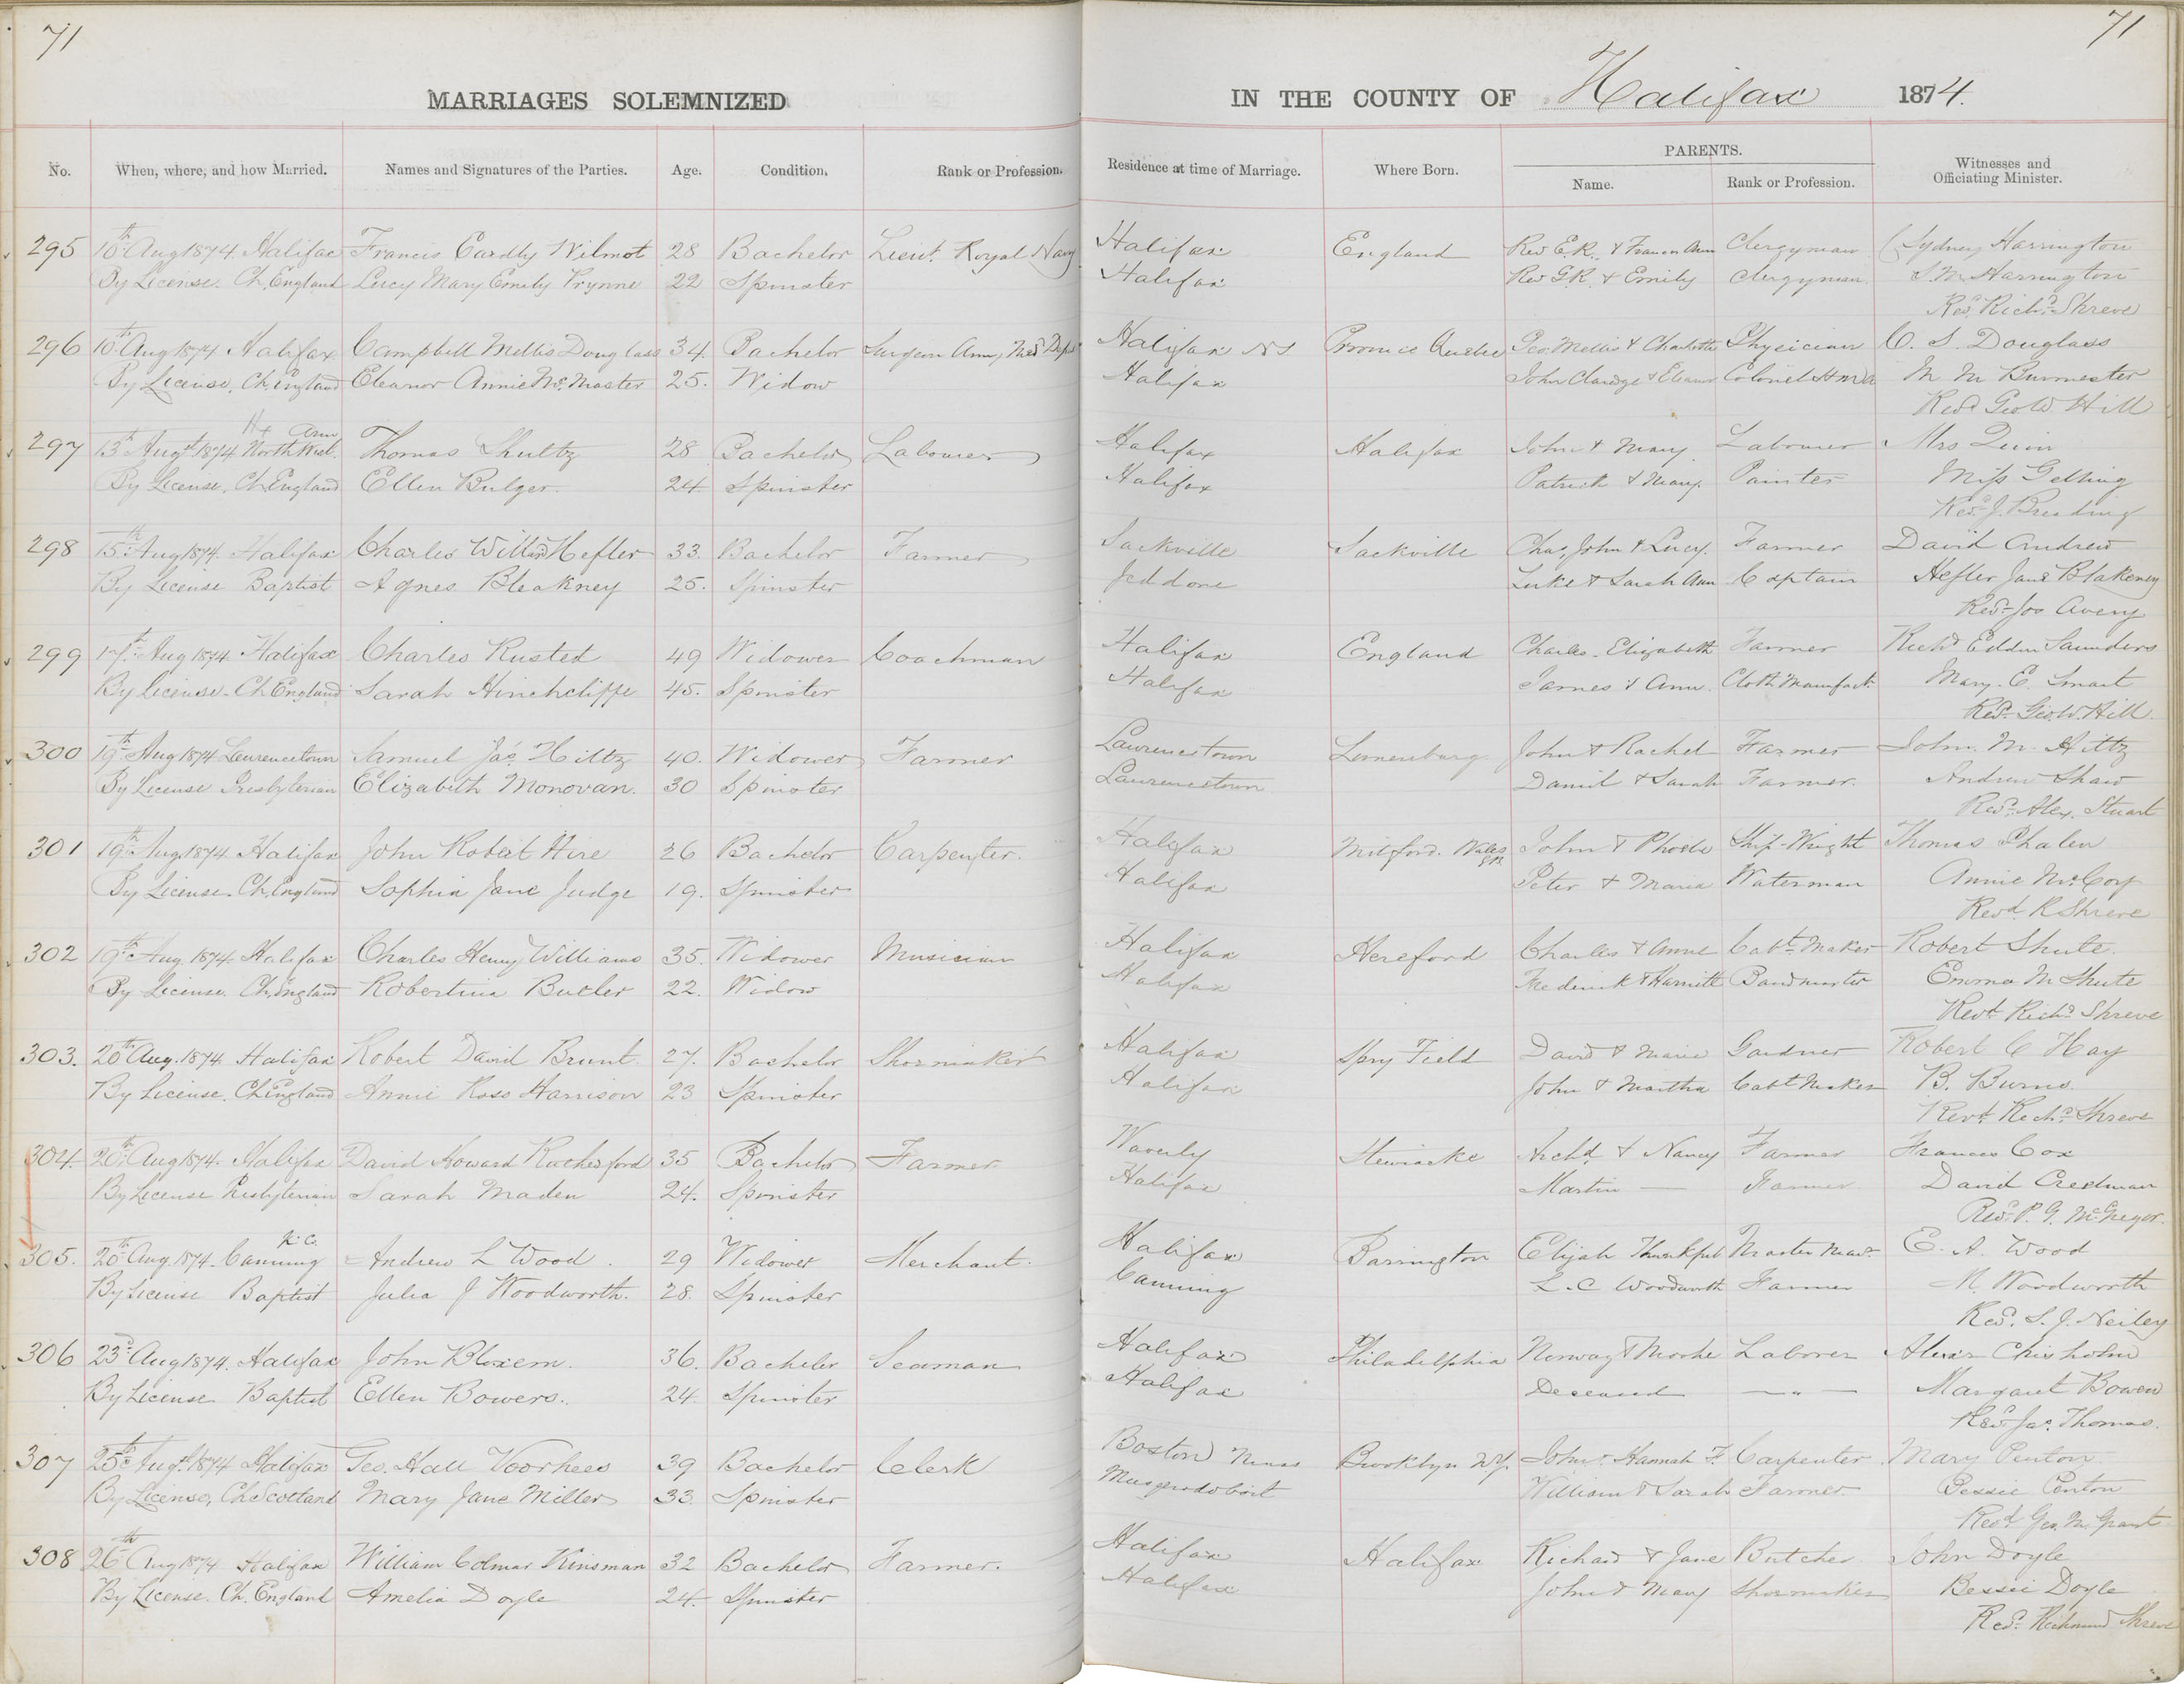 71
71
MARRIAGES SOLEMNIZED IN THE COUNTY OF Halifax 1874.
No. When, where, and how Married. Names and Signatures of the Parties. Age. Condition. Rank or Profession. Residence at time of Marriage. Where Born. PARENTS. Name. Rank or Profession. Witnesses and Officiating Minister.
295 10th Aug 1874. Halifax Francis Eardly Wilmot 28 Bachelor Lieut. Royal Navy Halifax England Rev E. R. & Frances Ann Clergyman Sydney Harrington
By License. Ch. England Lucy Mary Emily Prynne 22 Spinster Halifax Rev G. R. & Emily Clergyman. S. M. Harrington
Revd. Richd. Shreve
296 10th Aug 1874 Halifax Campbell Mellis Douglass 34. Bachelor Surgeon Army Med Dept Halifax NS Province Quebec Geo Mellis & Charlotte Physician C. S. Douglass
By License, Ch England Eleanor Annie McMaster 25. Widow Halifax John Claridge & Eleanor Colonel M M Burmester
Revd Geo W. Hill
297 13th Augst 1874 North West Arm Hx Thomas Shultz 28 Bachelor Labourer Halifax Halifax John & Mary Labourer Mrs Quin
By License, Ch England Ellen Bulger. 24 Spinster Halifax Patrick & Mary. Painter Miss Gelling
Revd J. Breading
298 15th Aug 1874. Halifax Charles Willis Hefler 33. Bachelor Farmer Sackville Sackville Chas, John & Lucy. Farmer David Andrew
By License Baptist Agnes Bleakney 25. Spinster Jeddore Luke & Sarah Ann Captain Hefler Jane Blakeney
Revd Jos Avery
299 17th Aug 1874 Halifax Charles Rusted 49 Widower Coachman Halifax England Charles Elizabeth Farmer Richd Eddin Saunders
By License. Ch England Sarah Hinchcliffe 45. Spinster Halifax James & Ann. Cloth Manufact. Mary. E. Smart
Revd. Geo. W. Hill.
300 19th Aug 1874 Lawrencetown Samuel Jas. Hiltz 40. Widower Farmer Lawrencetown Lunenburg John & Rachel Farmer John. M. Hiltz
By License Presbyterian Elizabeth Monovan. 30 Spinster Lawrencetown Daniel & Sarah Farmer. Andrew Shaw
Revd. Alex. Stuart
301 19th Aug 1874 Halifax John Robert Hire 26 Bachelor Carpenter. Halifax Milford. Wales John & Phoebe Ship-Wright Thomas Phalen
By License. Ch. England Sophia Jane Judge 19. Spinster Halifax Peter & Maria Waterman Annie McCoy
Revd. R Shreve
302 19th Aug 1874. Halifax Charles Henry Williams 35. Widower Musician Halifax Hereford Charles & Anne Cabt. Maker Robert Shute.
By License. Ch. England Robertina Butler 22. Widow Halifax Frederick & Harriett Bandmaster Emma M Shute
Revd. Richd. Shreve
303. 20th Aug. 1874. Halifax Robert David Brunt. 27. Bachelor Shoemaker Halifax Spry Field David & Maria Gardner Robert C Hay
By License. Ch England Annie Ross Harrison 23 Spinster Halifax John & Martha Cabt Maker B. Burns.
Revd. Richd. Shreve
304. 20th Aug 1874. Halifax David Howard Rutherford 35 Bachelor Farmer. Waverly Stewiacke Archd. & Nancy Farmer Frances Cox
By License Presbyterian Sarah Maden 24. Spinster Halifax Martin — Farmer David Credman
Revd. P. G. McGregor.
305. 20th Aug 1874. Canning K. C. Andrew L Wood. 29 Widower Merchant. Halifax Barrington Elijah Thankful Master Marr. E. A. Wood
By License Baptist Julia J Woodworth. 28. Spinster Canning L. C Woodworth Farmer M. Woodworth
Revd. S. J. Neiley
306 23d. Aug 1874. Halifax John Bloxem. 36. Bachelor Seaman Halifax Philadelphia Laborer Alexr Chisholm
By License Baptist Ellen Bowers. 24. Spinster Halifax Deceased — " — Margaret Bowen
Revd. Jas. Thomas.
307 25th Augt. 1874 Halifax Geo. Hall Voorhees 39 Bachelor Clerk Boston Mass Brooklyn N.Y. John & Hannah F. Carpenter Mary Penton.
By License, Ch Scotland Mary Jane Miller 33. Spinster Musquodoboit William & Sarah Farmer Bessie Penton
Revd. Geo. M. Grant
308 26th Aug 1874 Halifax William Colmar Kinsman 32 Bachelor Farmer. Halifax Halifax Richard & Jane Butcher John Doyle
By License. Ch. England Amelia Doyle 24. Spinster Halifax John & Mary Shoemaker Bessie Doyle
Revd. Richmond Shreve